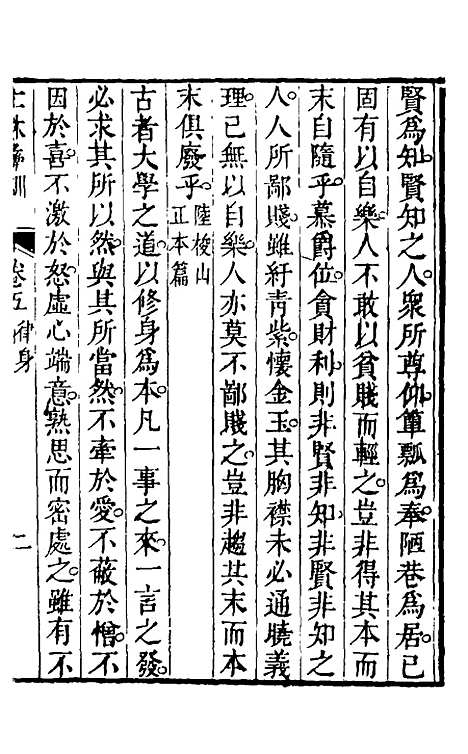 賢爲知。賢知之人。衆所尊仰。簞瓢爲奉。陋巷爲居。已
固有以自樂。人不敢以貧賤而輕之。豈非得其本而
末自隨乎。慕爵位。貪財利。則非賢非知。非賢非知之
人。人所鄙賤。雖紆青紫。懷金玉。其胸襟未必通曉義
理。已無以自樂。人亦莫不鄙賤之。豈非趨其末而本
末俱廢乎。陸梭山正本篇
古者大學之道。以修身爲本。凡一事之來。一言之發。
必求其所以然。與其所當然。不牽於愛。不蔽於憎。不
因於喜。不激於怒。虛心端意。熟思而密處之。雖有不
士林彝訓 卷五 律身 二